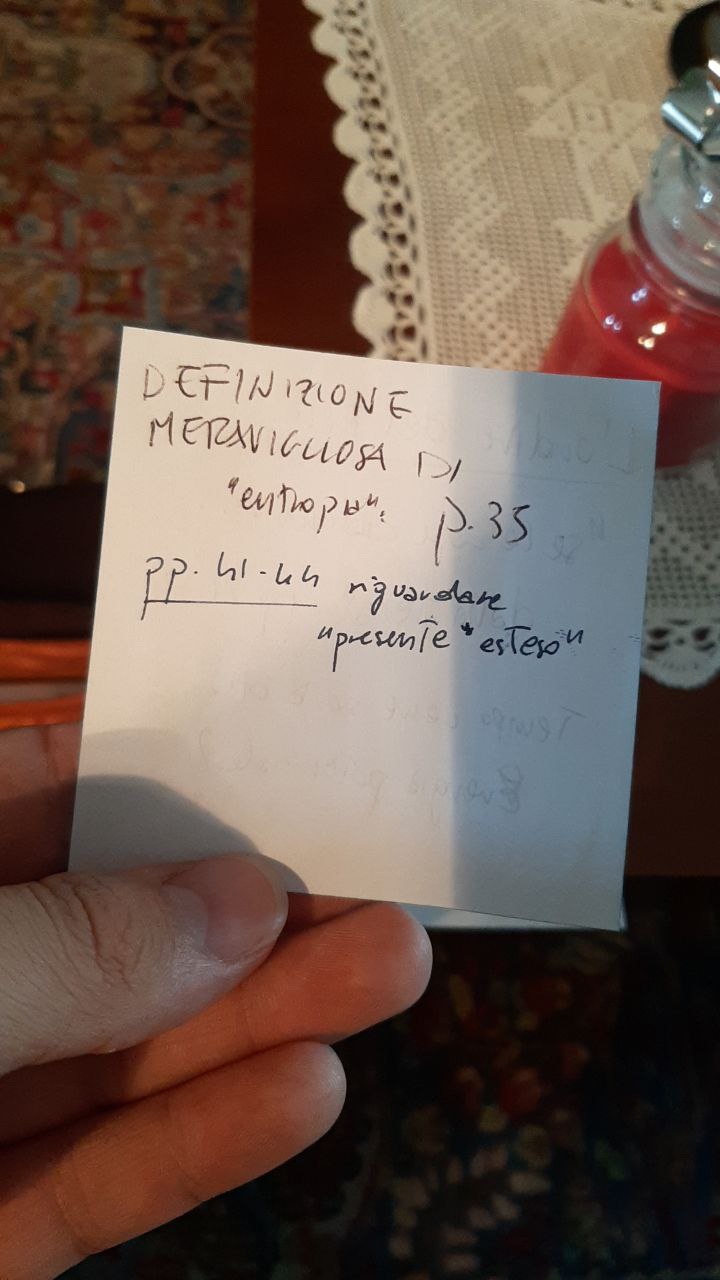 DEFINIZIONE
MERAVIGLIOSA DI
"entropia": p.35
pp. 41-44 riguardare
"presente * esteso"